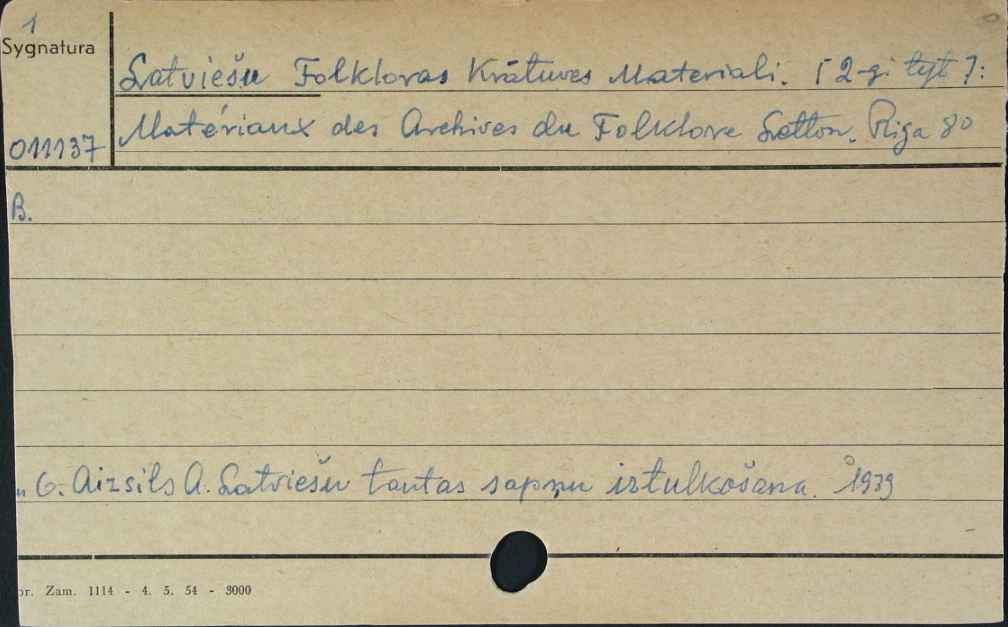 1
Sygnatura
Latviešu Folkloras Krātuves Materiali. [2-gi tyt]:
011137 Matériaux des Archives du Folklore Letton. Riga 8º
B.
„ 6. Aizsils A. Latviešu tautas sapņu iztulkošana. 1939
or. Zam. 1114 - 4. 5. 54 - 3000